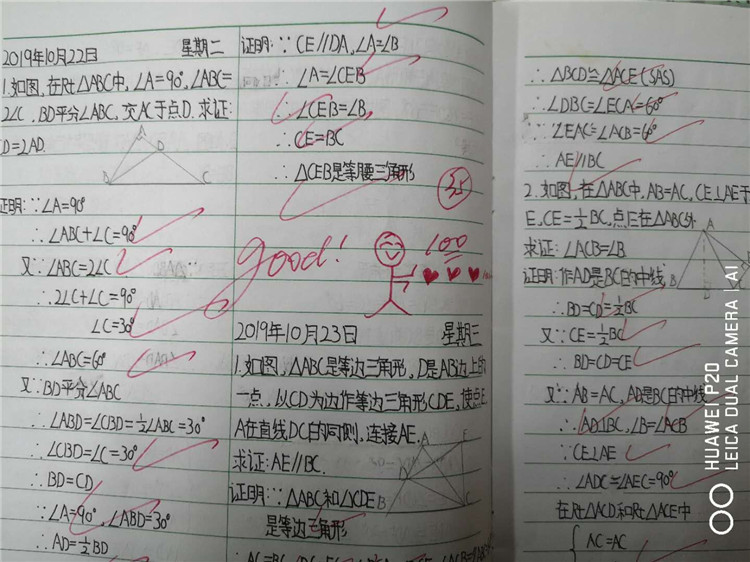 2019年10月22日 星期二
1.如图,在Rt△ABC中,∠A=90°,∠ABC=
2∠C,BD平分∠ABC,交AC于点D.求证:
CD=2AD.
A
D
B
C
证明:∵∠A=90°
∴∠ABC+∠C=90°
又∵∠ABC=2∠C
∴2∠C+∠C=90°
∠C=30°
∴∠ABC=60°
又∵BD平分∠ABC
∴∠ABD=∠CBD=½∠ABC=30°
∴∠CBD=∠C=30°
∴BD=CD
∵∠A=90°,∠ABD=30°
∴AD=½BD
证明:∵CE//DA,∠A=∠B
∴∠A=∠CEB
∴∠CEB=∠B
∴CE=BC
∴△CEB是等腰三角形
good!
100
2019年10月23日 星期三
1.如图,△ABC是等边三角形,D是AB边上的
一点,以CD为边作等边三角形CDE,使点E
A在直线DC的同侧,连接AE.
求证:AE//BC.
A
E
B
证明:∵△ABC和△CDE
是等边三角形
∴△BCD≌△ACE(SAS)
∴∠DBC=∠ECA=60°
∴∠EAC=∠ACB=60°
∴AE//BC
2.如图,在△ABC中,AB=AC,CE⊥AE于
E,CE=½BC,点E在△ABC外
求证:∠ACB=∠B
A
B
证明:作AD是BC的中线
∴BD=CD=½BC
又∵CE=½BC
∴BD=CD=CE
又∵AB=AC,AD是BC的中线
∴AD⊥BC,∠B=∠ACB
∵CE⊥AE
∴∠ADC=∠AEC=90°
在Rt△ACD和Rt△ACE中
AC=AC
HUAWEI P20
LEICA DUAL CAMERA | AI